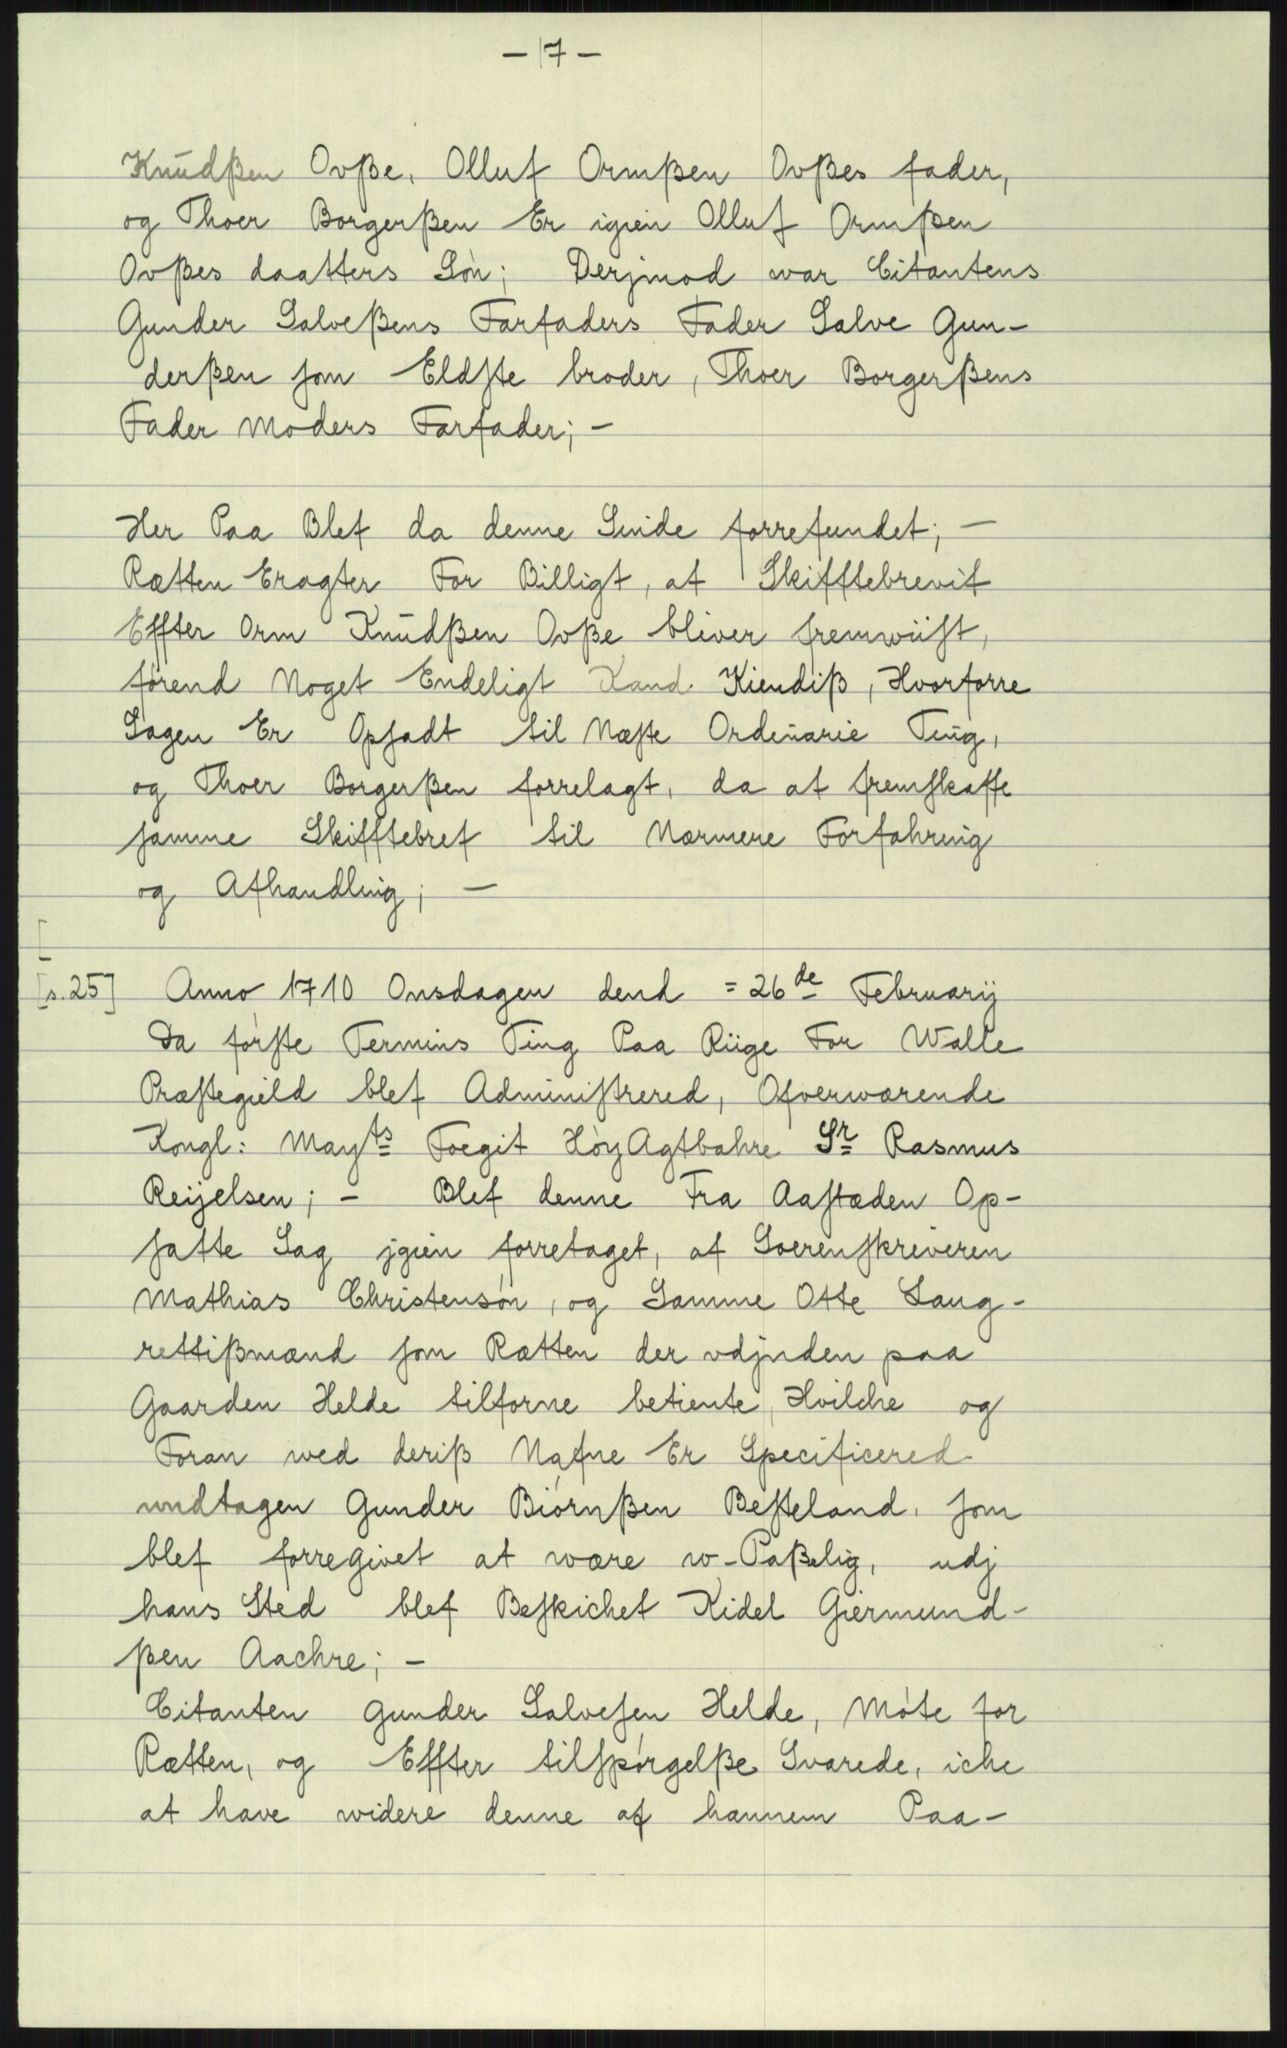 - 17 -
Knudßen Ovße, Olluf Ormßen Ovßes fader,
og Thoer Borgerßen Er igien Olluf Ormßen
Ovßes daatters Søn; Derjmod war Citantens
Gunder Salveßens Farfaders Fader Salve Gun-
derßen som Eldste broder, Thoer Borgerßens
Fader Moders Farfader; -
Her Paa Blef da denne Sinde forrefundet; -
Rætten Eragter For Billigt, at Skifftebrevit
Effter Orm Knudßen Ovße bliver fremwiist,
førend Noget Endeligt Kand Kiendiß, Hvorforre
Sagen Er Opsadt til Næste Ordinarie Ting,
og Thoer Borgerßen forrelagt, da at fremskaffe
samme Skifftebref til Nærmere Forfahring
og Afhandling; -
[
[s.25] Anno 1710 Onsdagen dend = 26de Februarij
Da første Termins Ting Paa Riige For Walle
Præstegield blef Administrered, Ofverwærende
Kongl: Mayts Foegit HøyAgtbahre Sr Rasmus
Reijelsen; - Blef denne Fra Aastæden Op-
satte Sag jgien forretaget, af Soerenskriveren
Mathias Christensøn, og Samme Otte Laug-
rettißmænd som Rætten der udjnden paa
Gaarden Helde tilforne betiente, Hvilche og
Foran wed deriß Nafne Er Specificered
undtagen Gunder Biørnßen Besteland, som
blef forregivet at wære w-Paßelig, udj
hans Sted blef Beskichet Kidel Giermund-
ßen Aachre; -
Citanten Gunder Salvesen Helde, Møte for
Rætten, og Effter tilspørgelße Svarede, iche
at have widere denne af hannem Paa-